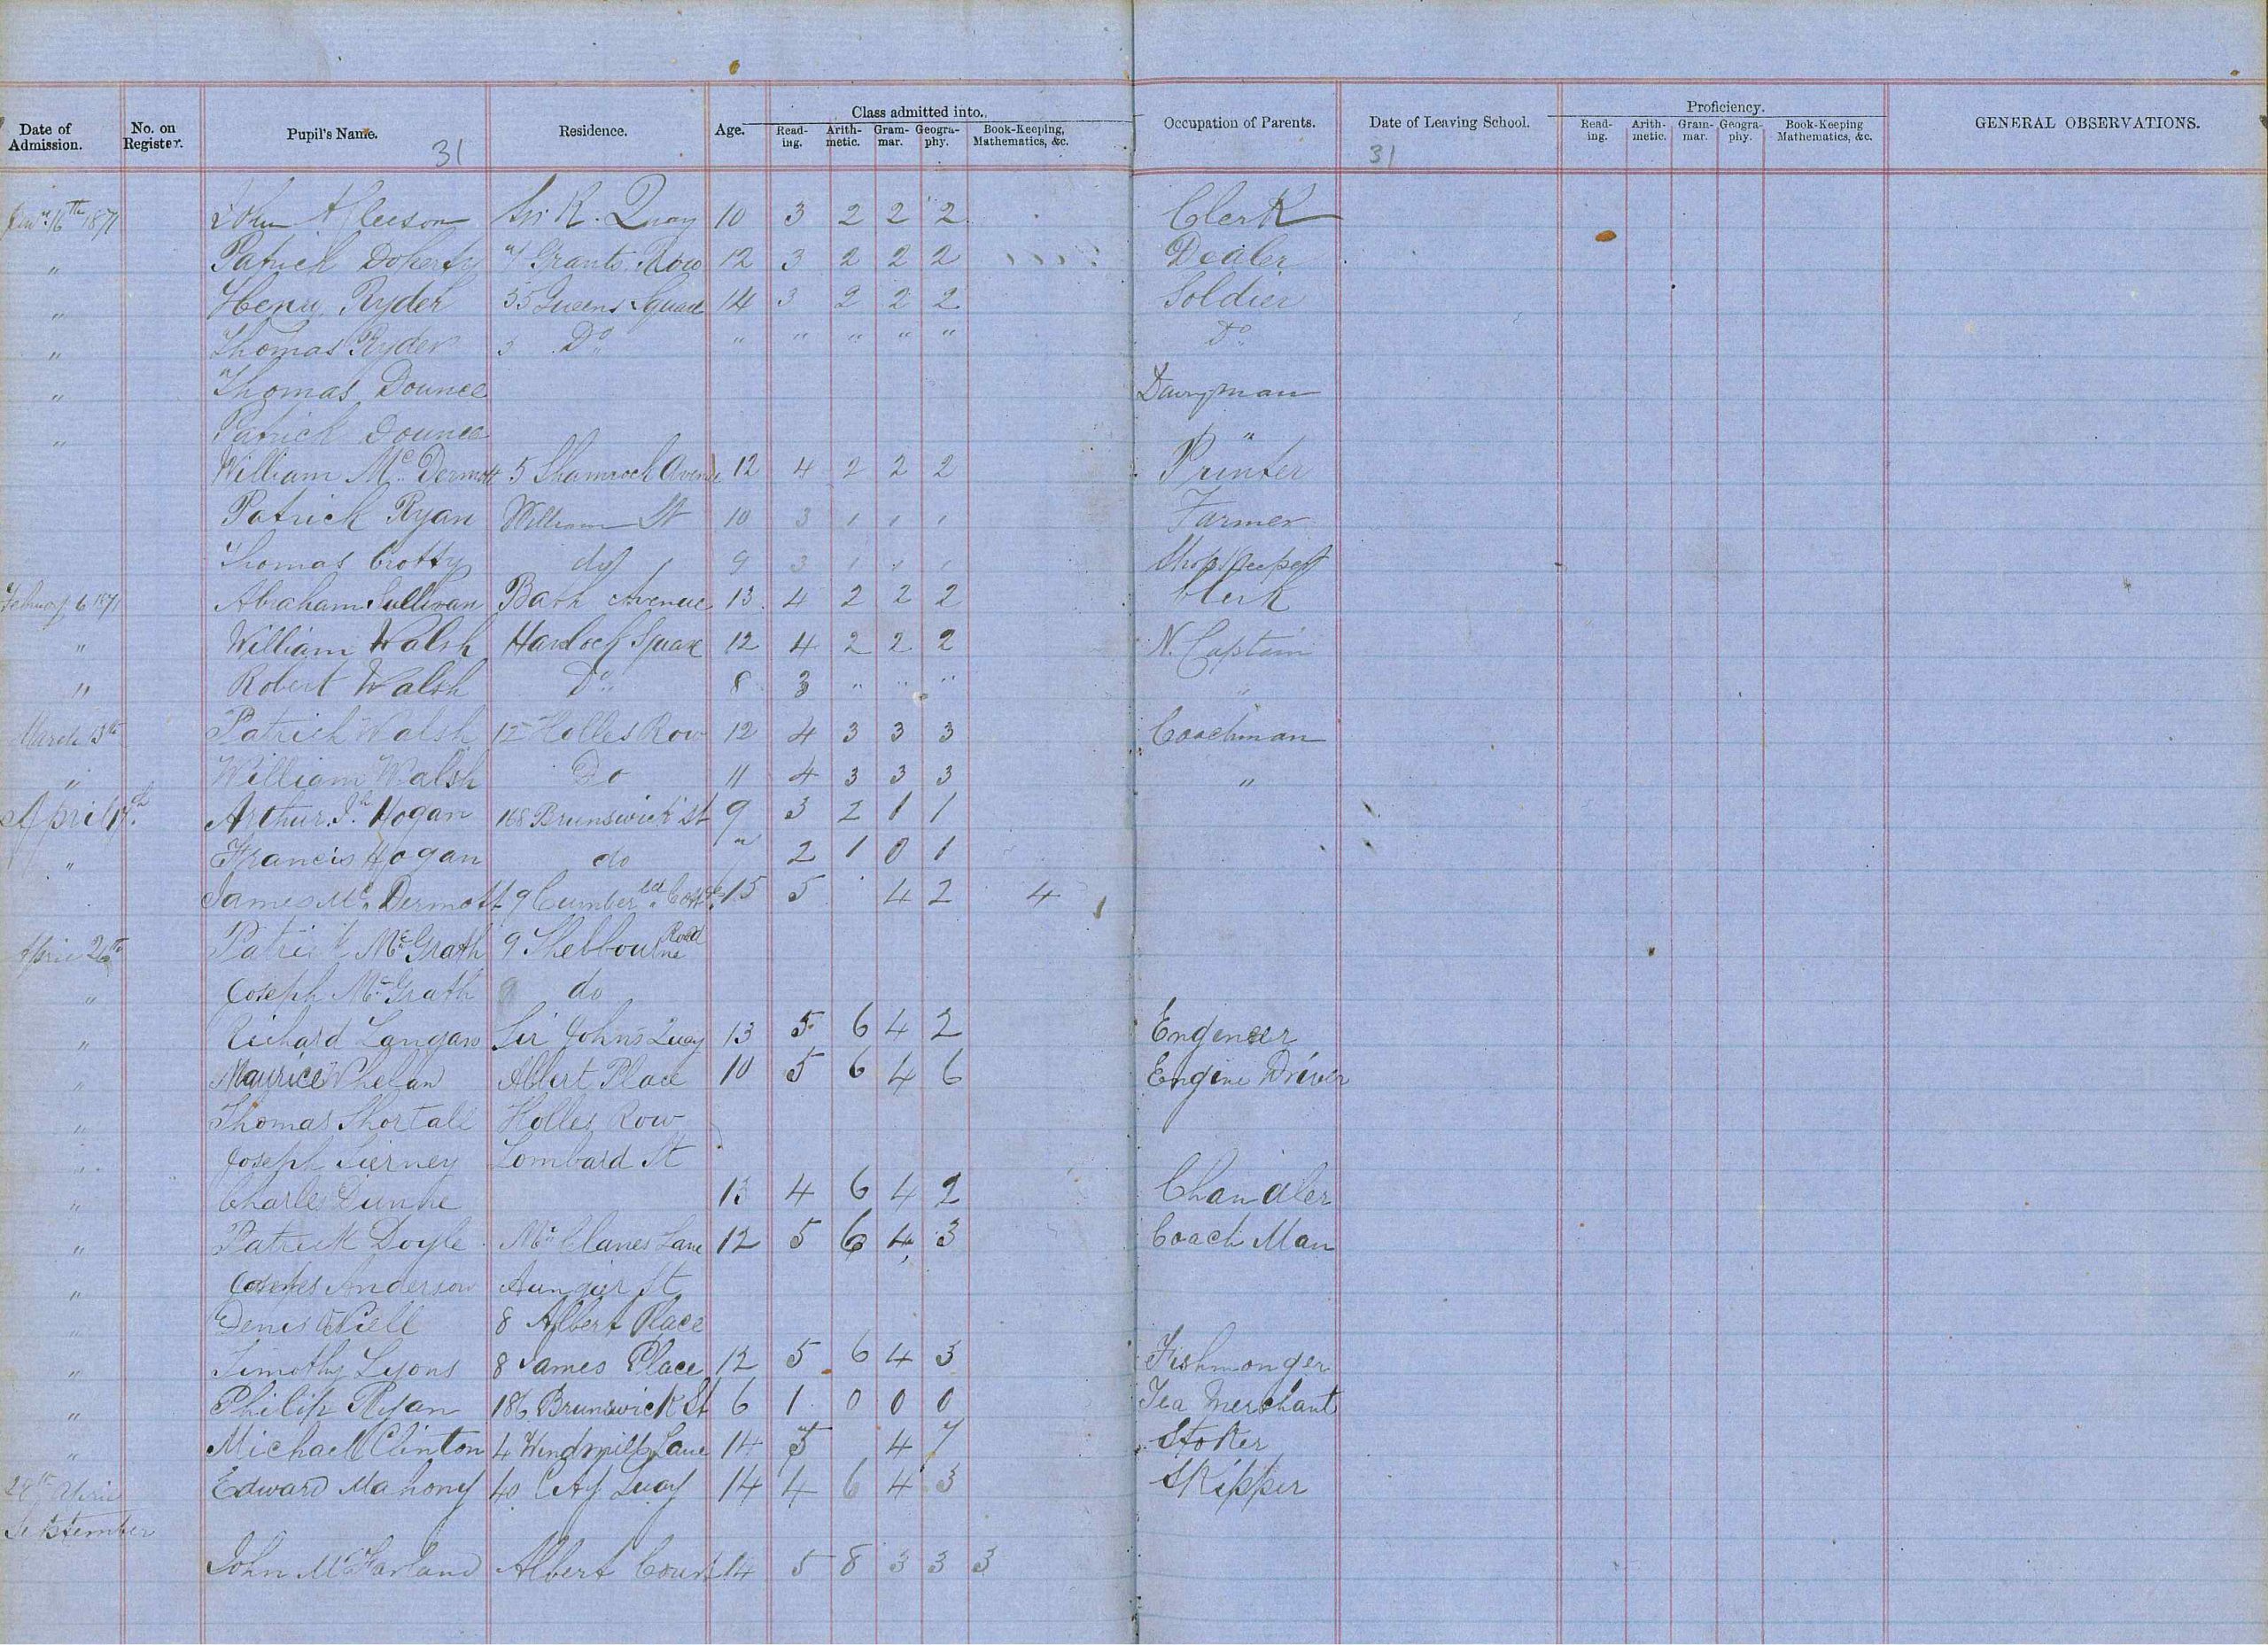 Class admitted into.
Proficiency.
Date of Admission. No. on Register. Pupil's Name. Residence. Age. Read-ing. Arith-metic. Gram-mar. Geogra-phy. Book-Keeping, Mathematics, &c. Occupation of Parents. Date of Leaving School. Read-ing. Arith-metic. Gram-mar. Geogra-phy. Book-Keeping Mathematics, &c. GENERAL OBSERVATIONS.
31 31
16th 1871 John Gleeson Sir R. Quay 10 3 2 2 2 Clerk
" Patrick Doherty Grants Row 12 3 2 2 2 Dealer
" Henry Ryder 35 Queens Square 14 3 2 2 2 Soldier
" Thomas Ryder Do " " " " " Do
" Thomas Dounce Dairyman
" Patrick Dounce "
William McDermott 5 Shamrock Avenue 12 4 2 2 2 Printer
Patrick Ryan William St 10 3 1 1 1 Farmer
Thomas Crotty do 9 3 1 1 1 Shopkeeper
February 6 1871 Abraham Sullivan Bath Avenue 13 4 2 2 2 Clerk
" William Walsh Havlock Square 12 4 2 2 2 N. Captain
" Robert Walsh Do 8 3 " " " "
March 13th Patrick Walsh 12 Holles Row 12 4 3 3 3 Coachman
" William Walsh Do 11 4 3 3 3 "
April 17th Arthur Jh Hogan 168 Brunswick St 9 3 2 1 1
" Francis Hogan do 7 2 1 0 1
James McDermott 9 Cumberld Cottgs 15 5 4 2 4
April 26th Patrick McGrath 9 Shelbourne Road
" Joseph McGrath 9 do
" Richard Langan Sir John's Quay 13 5 6 4 2 Engeneer
" Maurice Whelan Albert Place 10 5 6 4 6 Engine Driver
" Thomas Shortall Holles Row
" Joseph Tierney Lombard St
" Charles Dunne 13 4 6 4 2 Chandler
" Patrick Doyle McClanes Lane 12 5 6 4 3 Coach Man
" Anderson Aungier St
" Denis O'Niell 8 Albert Place
" Timothy Lyons 8 James Place 12 5 6 4 3 Fishmonger
" Philip Ryan 186 Brunswick St 6 1 0 0 0 Tea Merchant
" Michael Clinton 4 Windmill Lane 14 5 4 7 Stoker
28th April Edward Mahony 40 City Quay 14 4 6 4 3 Skipper
September
John McFarland Albert Court 14 5 8 3 3 3